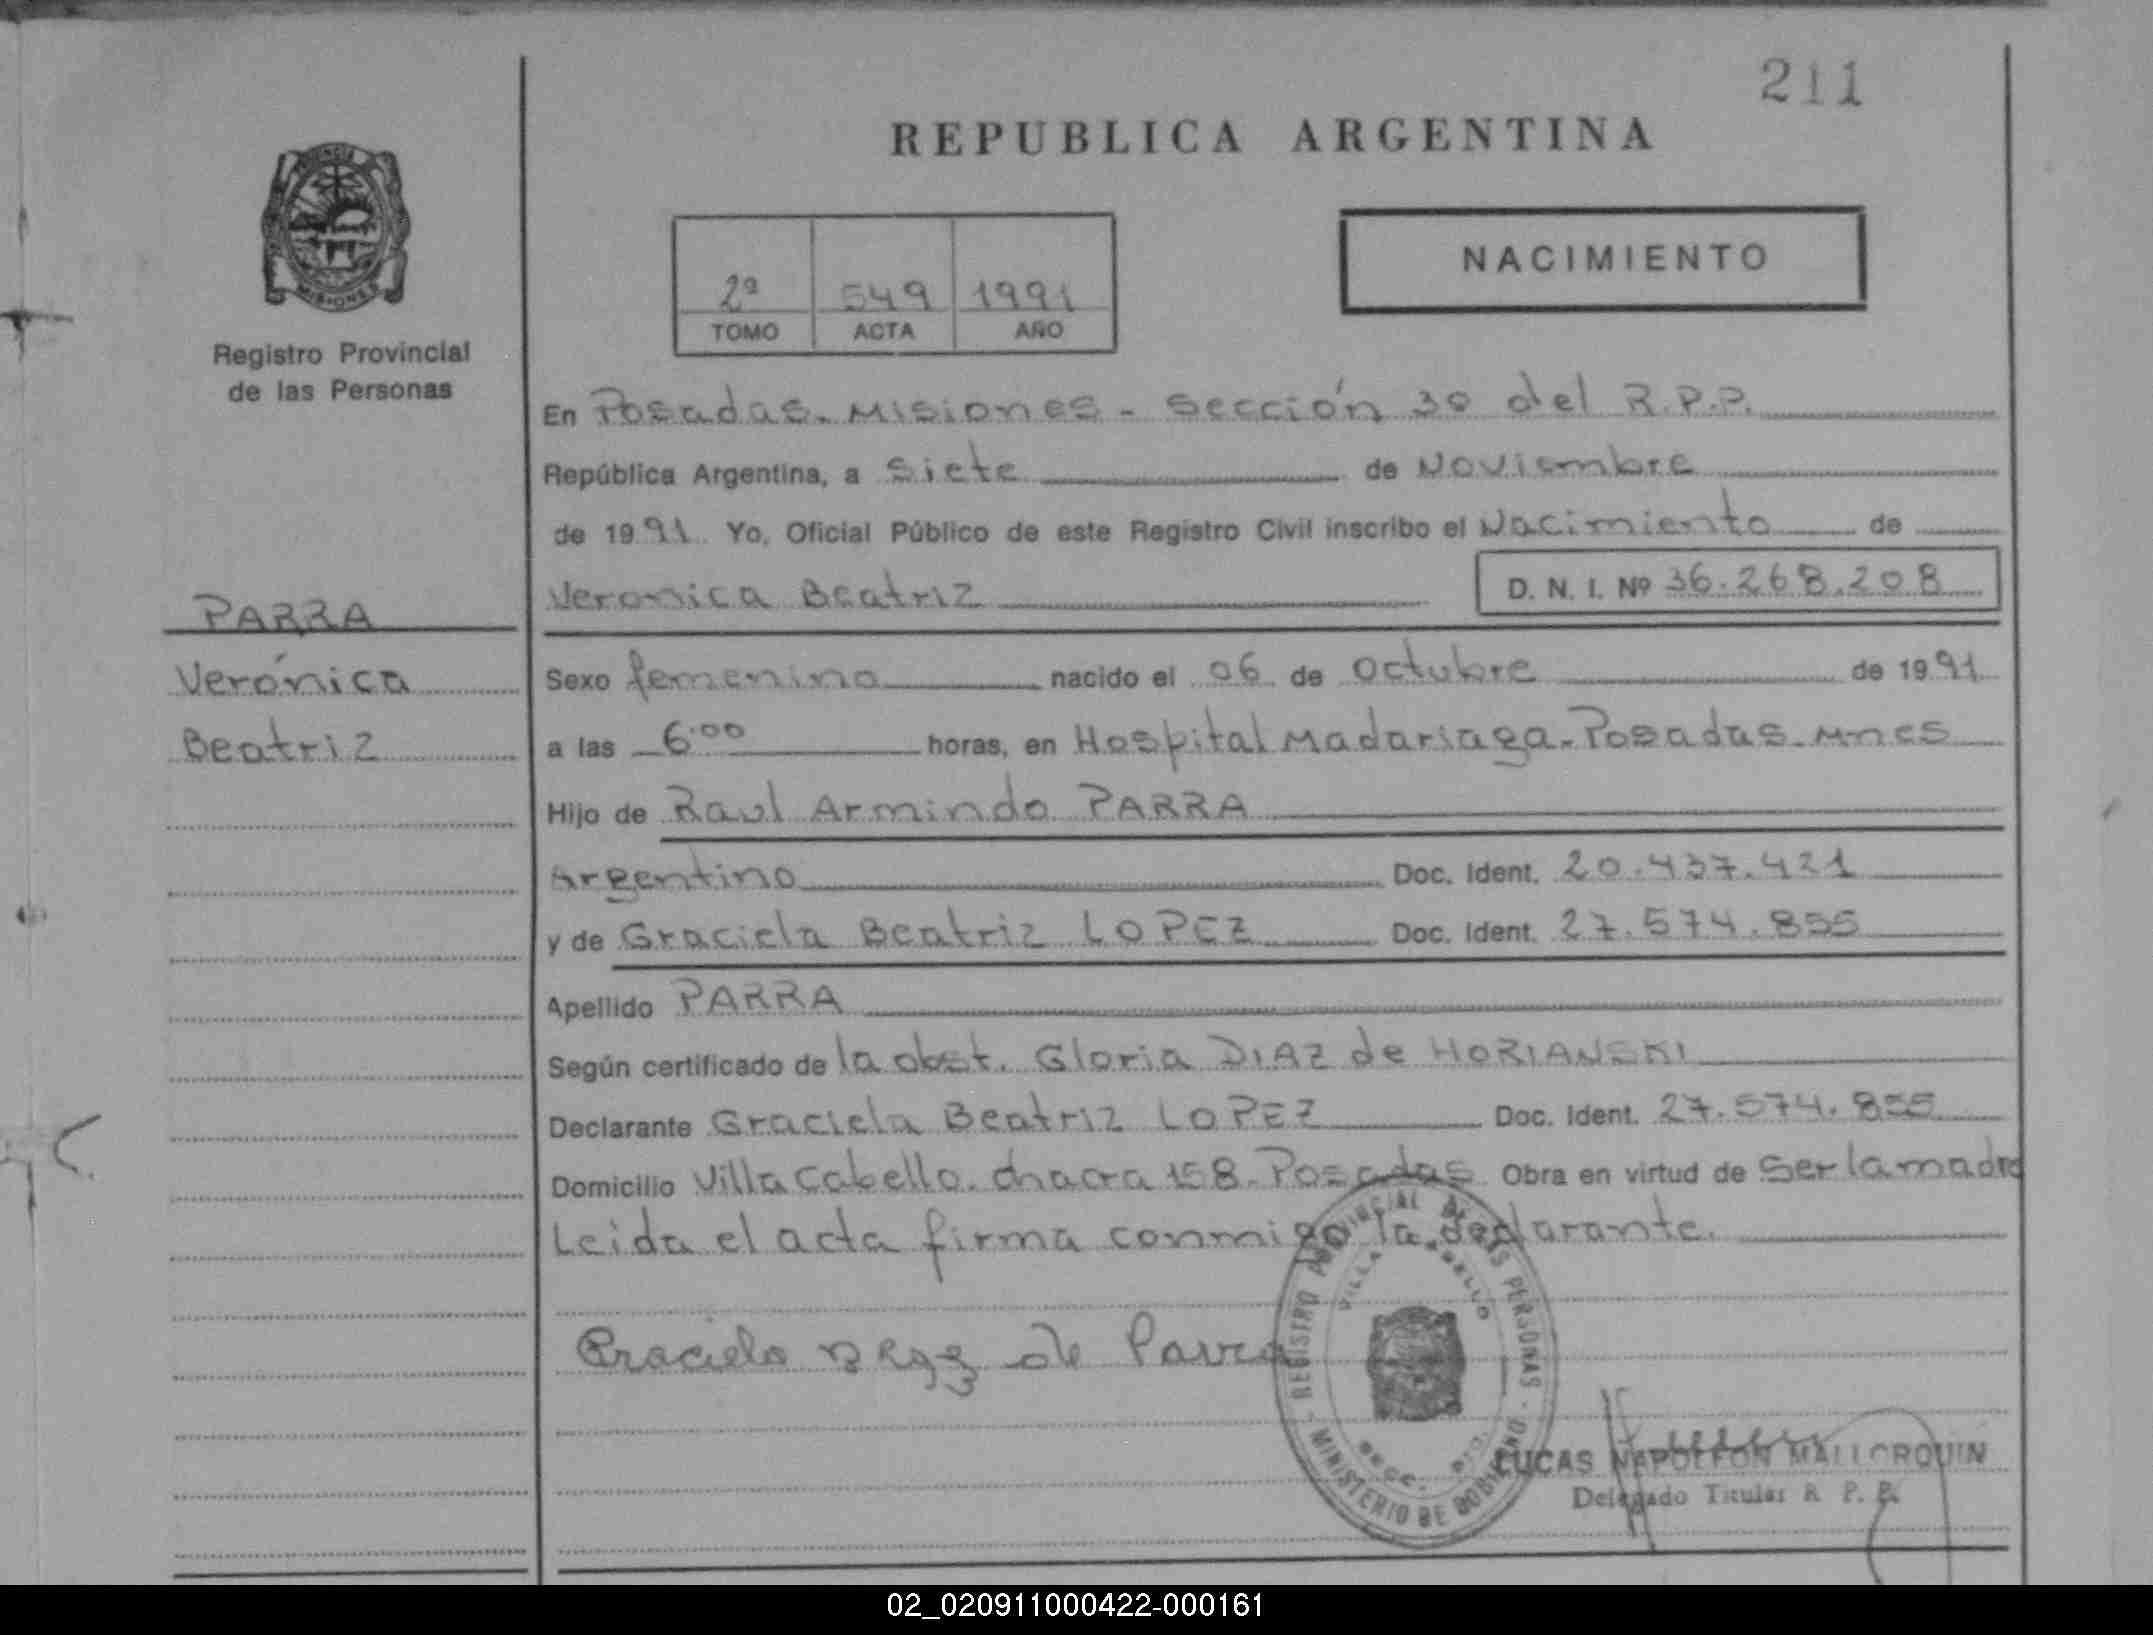 211
REPUBLICA ARGENTINA
NACIMIENTO
2º 549 1991
TOMO ACTA AÑO
MISIONES
Registro Provincial
de las Personas
PARRA
Verónica
Beatriz
En Posadas. Misiones - Sección 3º del R.P.P.
República Argentina, a Siete de Noviembre
de 1991 Yo, Oficial Público de este Registro Civil inscribo el Nacimiento de
Veronica Beatriz D. N. I. Nº 36.268.208
Sexo femenino nacido el 06 de Octubre de 1991
a las 6.00 horas, en Hospital Madariaga. Posadas. Mnes
Hijo de Raul Armindo PARRA
Argentino Doc. Ident. 20.437.421
y de Graciela Beatriz LOPEZ Doc. Ident. 27.574.855
Apellido PARRA
Según certificado de la obst. Gloria DIAZ de HORIANSKI
Declarante Graciela Beatriz LOPEZ Doc. Ident. 27.574.855
Domicilio Villa Cabello. chacra 158. Posadas Obra en virtud de Ser la madre
Leida el acta firma conmigo la declarante.
Graciela de Parra
REGISTRO PROVINCIAL DE LAS PERSONAS
VILLA CABELLO
MINISTERIO DE GOBIERNO
LUCAS NAPOLEON MALLORQUIN
Delegado Titular R. P. P.
02_020911000422-000161